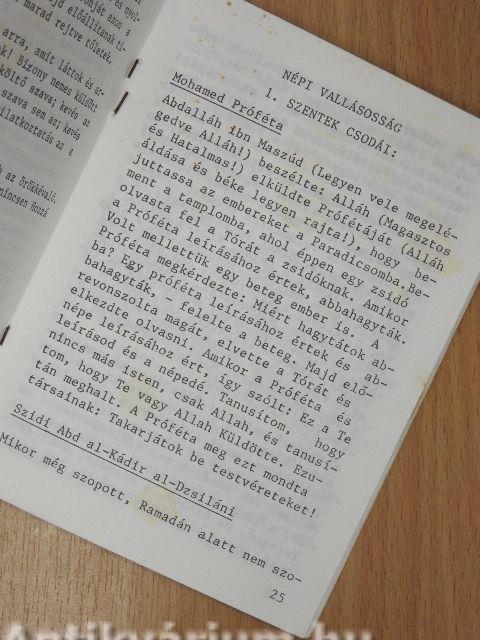 nyol-
onját azon a
jd előállítanak ti-
marad rejtve tőletek.
arra, amit láttok és ar-
k! Bizony nemes küldött
költő szava; kevés az
szava sem az; kevés
ilatkoztatás az a
h az Örökkévaló.
nincsen Hozzá
NÉPI VALLÁSOSSÁG
1. SZENTEK CSODÁI:
Mohamed Próféta
Abdalláh ibn Maszúd (Legyen vele megelé-
gedve Alláh!) beszélte: Alláh (Magasztos
és Hatalmas!) elküldte Prófétáját (Alláh
áldása és béke legyen rajta!), hogy be-
juttassa az embereket a Paradicsomba.Be-
ment a templomba, ahol éppen egy zsidó
olvasta fel a Tórát a zsidóknak. Amikor
a Próféta leírásához értek, abbahagyták.
Volt mellettük egy beteg ember is. A
Próféta megkérdezte: Miért hagytátok ab-
ba? Egy próféta leírásához értek és ab-
bahagyták, - felelte a beteg. Majd elő-
revonszolta magát, elvette a Tórát és
elkezdte olvasni. Amikor a Próféta és
népe leírásához ért, így szólt: Ez a Te
leírásod és a népedé. Tanusítom, hogy
nincs más isten, csak Allah, és tanusí-
tom, hogy Te vagy Allah Küldötte. Ezu-
tán meghalt. A Próféta meg ezt mondta
társainak: Takarjátok be testvéreteket!
Szidi Abd al-Kádir al-Dzsiláni
Mikor még szopott, Ramadán alatt nem szo-
25
Antikvárium.hu